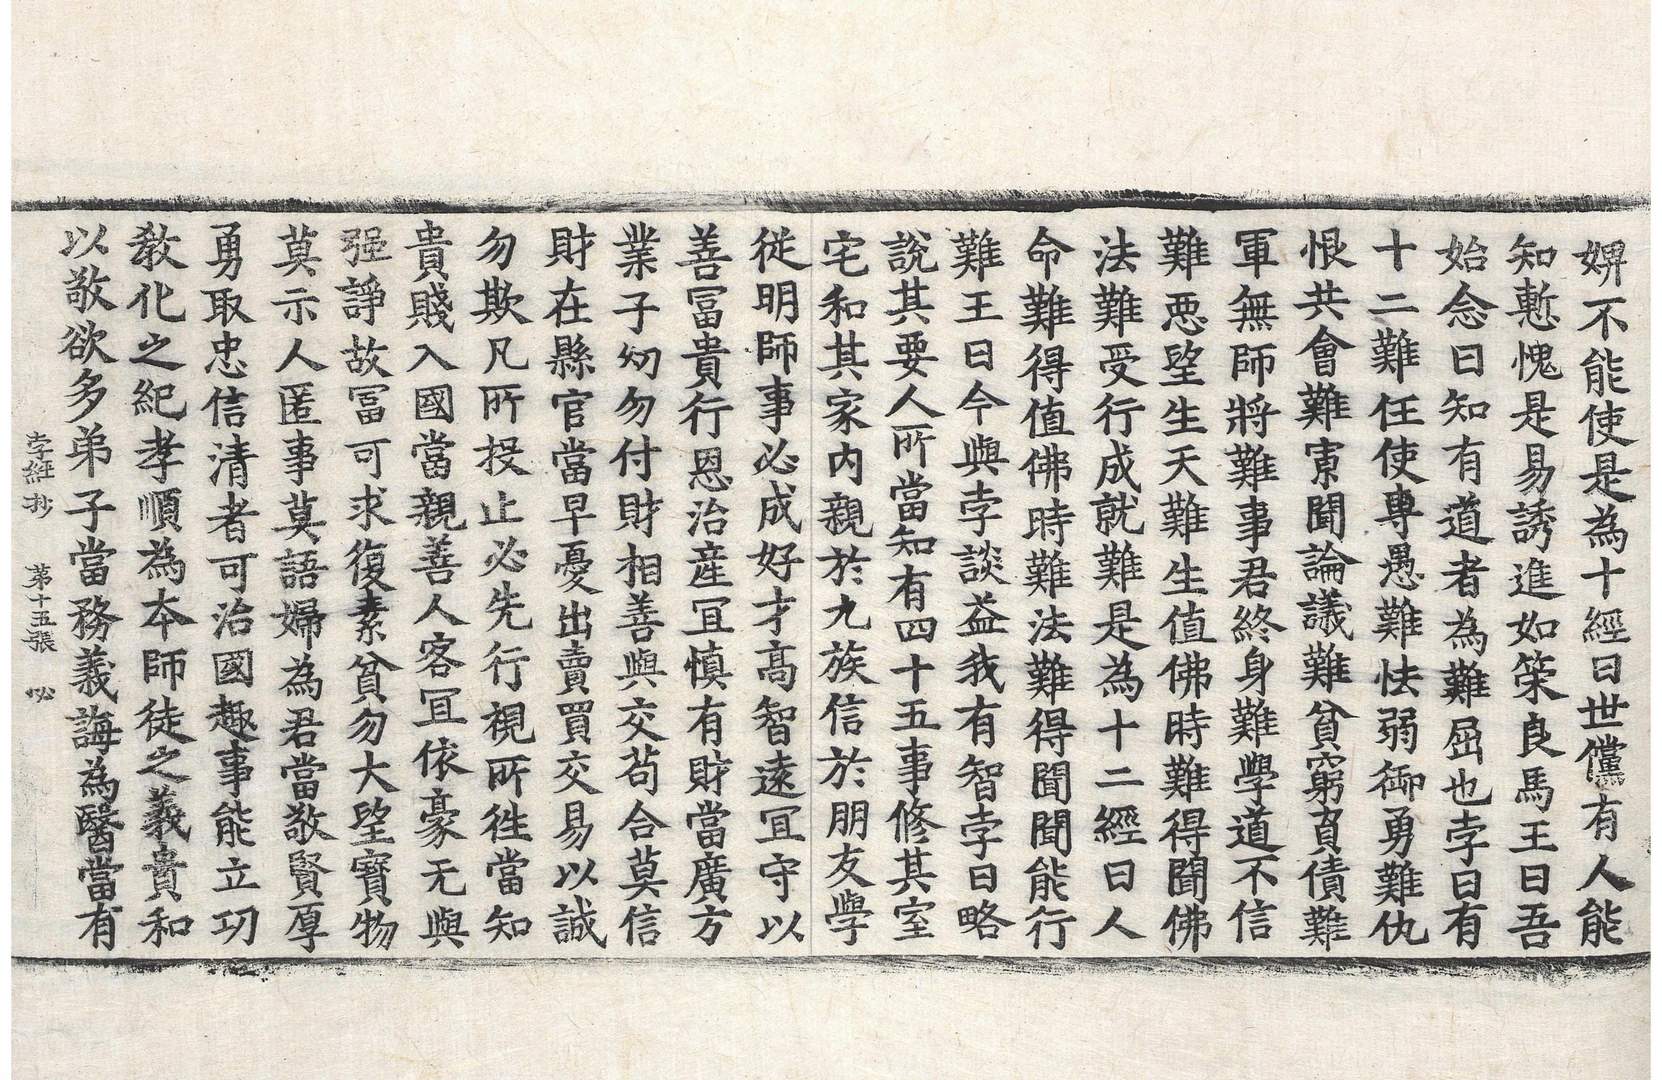 婢不能使是為十經曰世儻有人能
知慙愧是易誘進如策良馬王曰吾
始念曰知有道者為難屈也孛曰有
十二難任使專愚難怯弱御勇難仇
恨共會難寡聞論議難貧窮負債難
軍無師將難事君終身難學道不信
難惡望生天難生值佛時難得聞佛
法難受行成就難是為十二經曰人
命難得值佛時難法難得聞聞能行
難王曰今與孛談益我有智孛曰略
說其要人所當知有四十五事修其室
宅和其家內親於九族信於朋友學
從明師事必成好才高智遠冝守以
善冨貴行恩治產冝慎有財當廣方
業子幼勿付財相善與交苟合莫信
財在縣官當早憂出賣買交易以誠
勿欺凡所投止必先行視所徃當知
貴賤入國當親善人客冝依豪无與
强諍故冨可求復素貧勿大望寳物
莫示人匿事莫語婦為君當敬賢厚
勇取忠信清者可治國趣事能立功
教化之紀孝順為本師徒之義貴和
以敬欲多弟子當務義誨為醫當有
孛經抄　第十五張　必